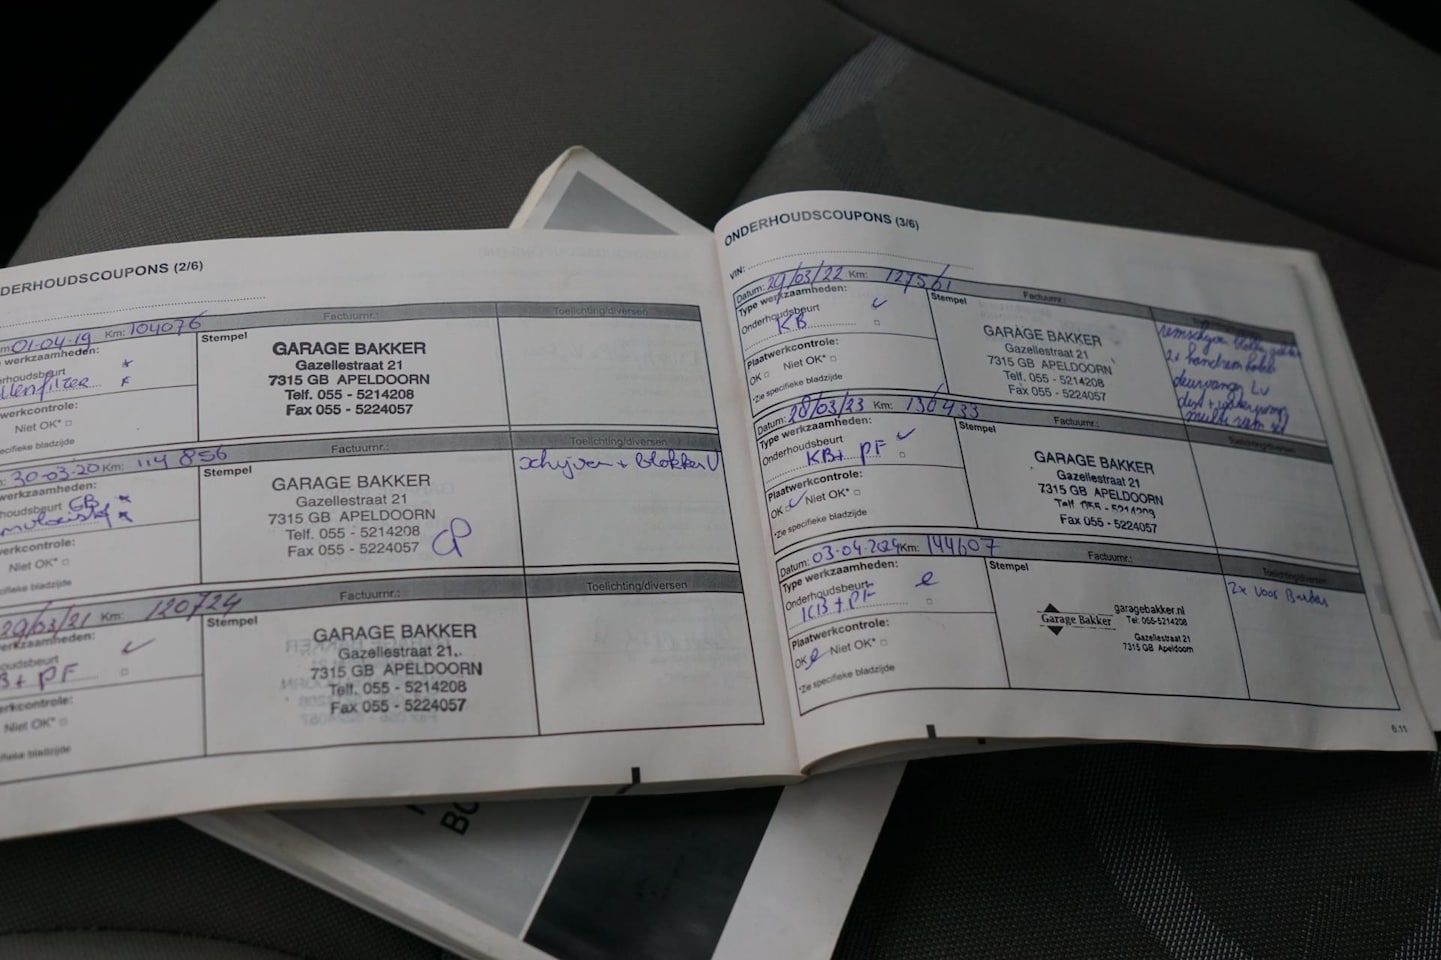 DERHOUDSCOUPONS (2/6)
01-04-19 Km: 104076
Factuurnr.:
Toelichting/diversen
werkzaamheden:
Stempel
erhoudsbeurt
GARAGE BAKKER
Gazellestraat 21
7315 GB APELDOORN
Telf. 055 - 5214208
Fax 055 - 5224057
werkcontrole:
Niet OK*
specifieke bladzijde
30-03-20 Km: 114 856
Factuurnr.:
Toelichting/diversen
werkzaamheden:
Stempel
schijven + blokken V
houdsbeurt GB
GARAGE BAKKER
Gazellestraat 21
7315 GB APELDOORN
Telf. 055 - 5214208
Fax 055 - 5224057
erkcontrole:
Niet OK*
cifieke bladzijde
29/03/21 Km: 120724
Factuurnr.:
Toelichting/diversen
erkzaamheden:
Stempel
oudsbeurt
B+ PF
GARAGE BAKKER
Gazellestraat 21
7315 GB APELDOORN
Telf. 055 - 5214208
Fax 055 - 5224057
erkcontrole:
Niet OK*
ifieke bladzijde
ONDERHOUDSCOUPONS (3/6)
VIN:
Datum: 29/03/22 Km: 127561
Factuurnr.:
Type werkzaamheden:
Stempel
Onderhoudsbeurt
KB
GARAGE BAKKER
Gazellestraat 21
7315 GB APELDOORN
Telf. 055 - 5214208
Fax 055 - 5224057
2x
LV
Plaatwerkcontrole:
OK Niet OK*
*Zie specifieke bladzijde
Datum: 28/03/23 Km: 136433
Factuurnr.:
Toelichting/diversen
Type werkzaamheden:
Stempel
Onderhoudsbeurt
KB+ PF
GARAGE BAKKER
Gazellestraat 21
7315 GB APELDOORN
Telf. 055 - 5214208
Fax 055 - 5224057
Plaatwerkcontrole:
OK Niet OK*
*Zie specifieke bladzijde
Datum: 03-04-2024 Km: 144607
Factuurnr.:
Toelichting/diversen
Type werkzaamheden:
Stempel
2x voor
Onderhoudsbeurt
KB+PF
Garage Bakker
garagebakker.nl
Tel: 055-5214208
Gazellestraat 21
7315 GB Apeldoorn
Plaatwerkcontrole:
OK Niet OK*
*Zie specifieke bladzijde
6.11